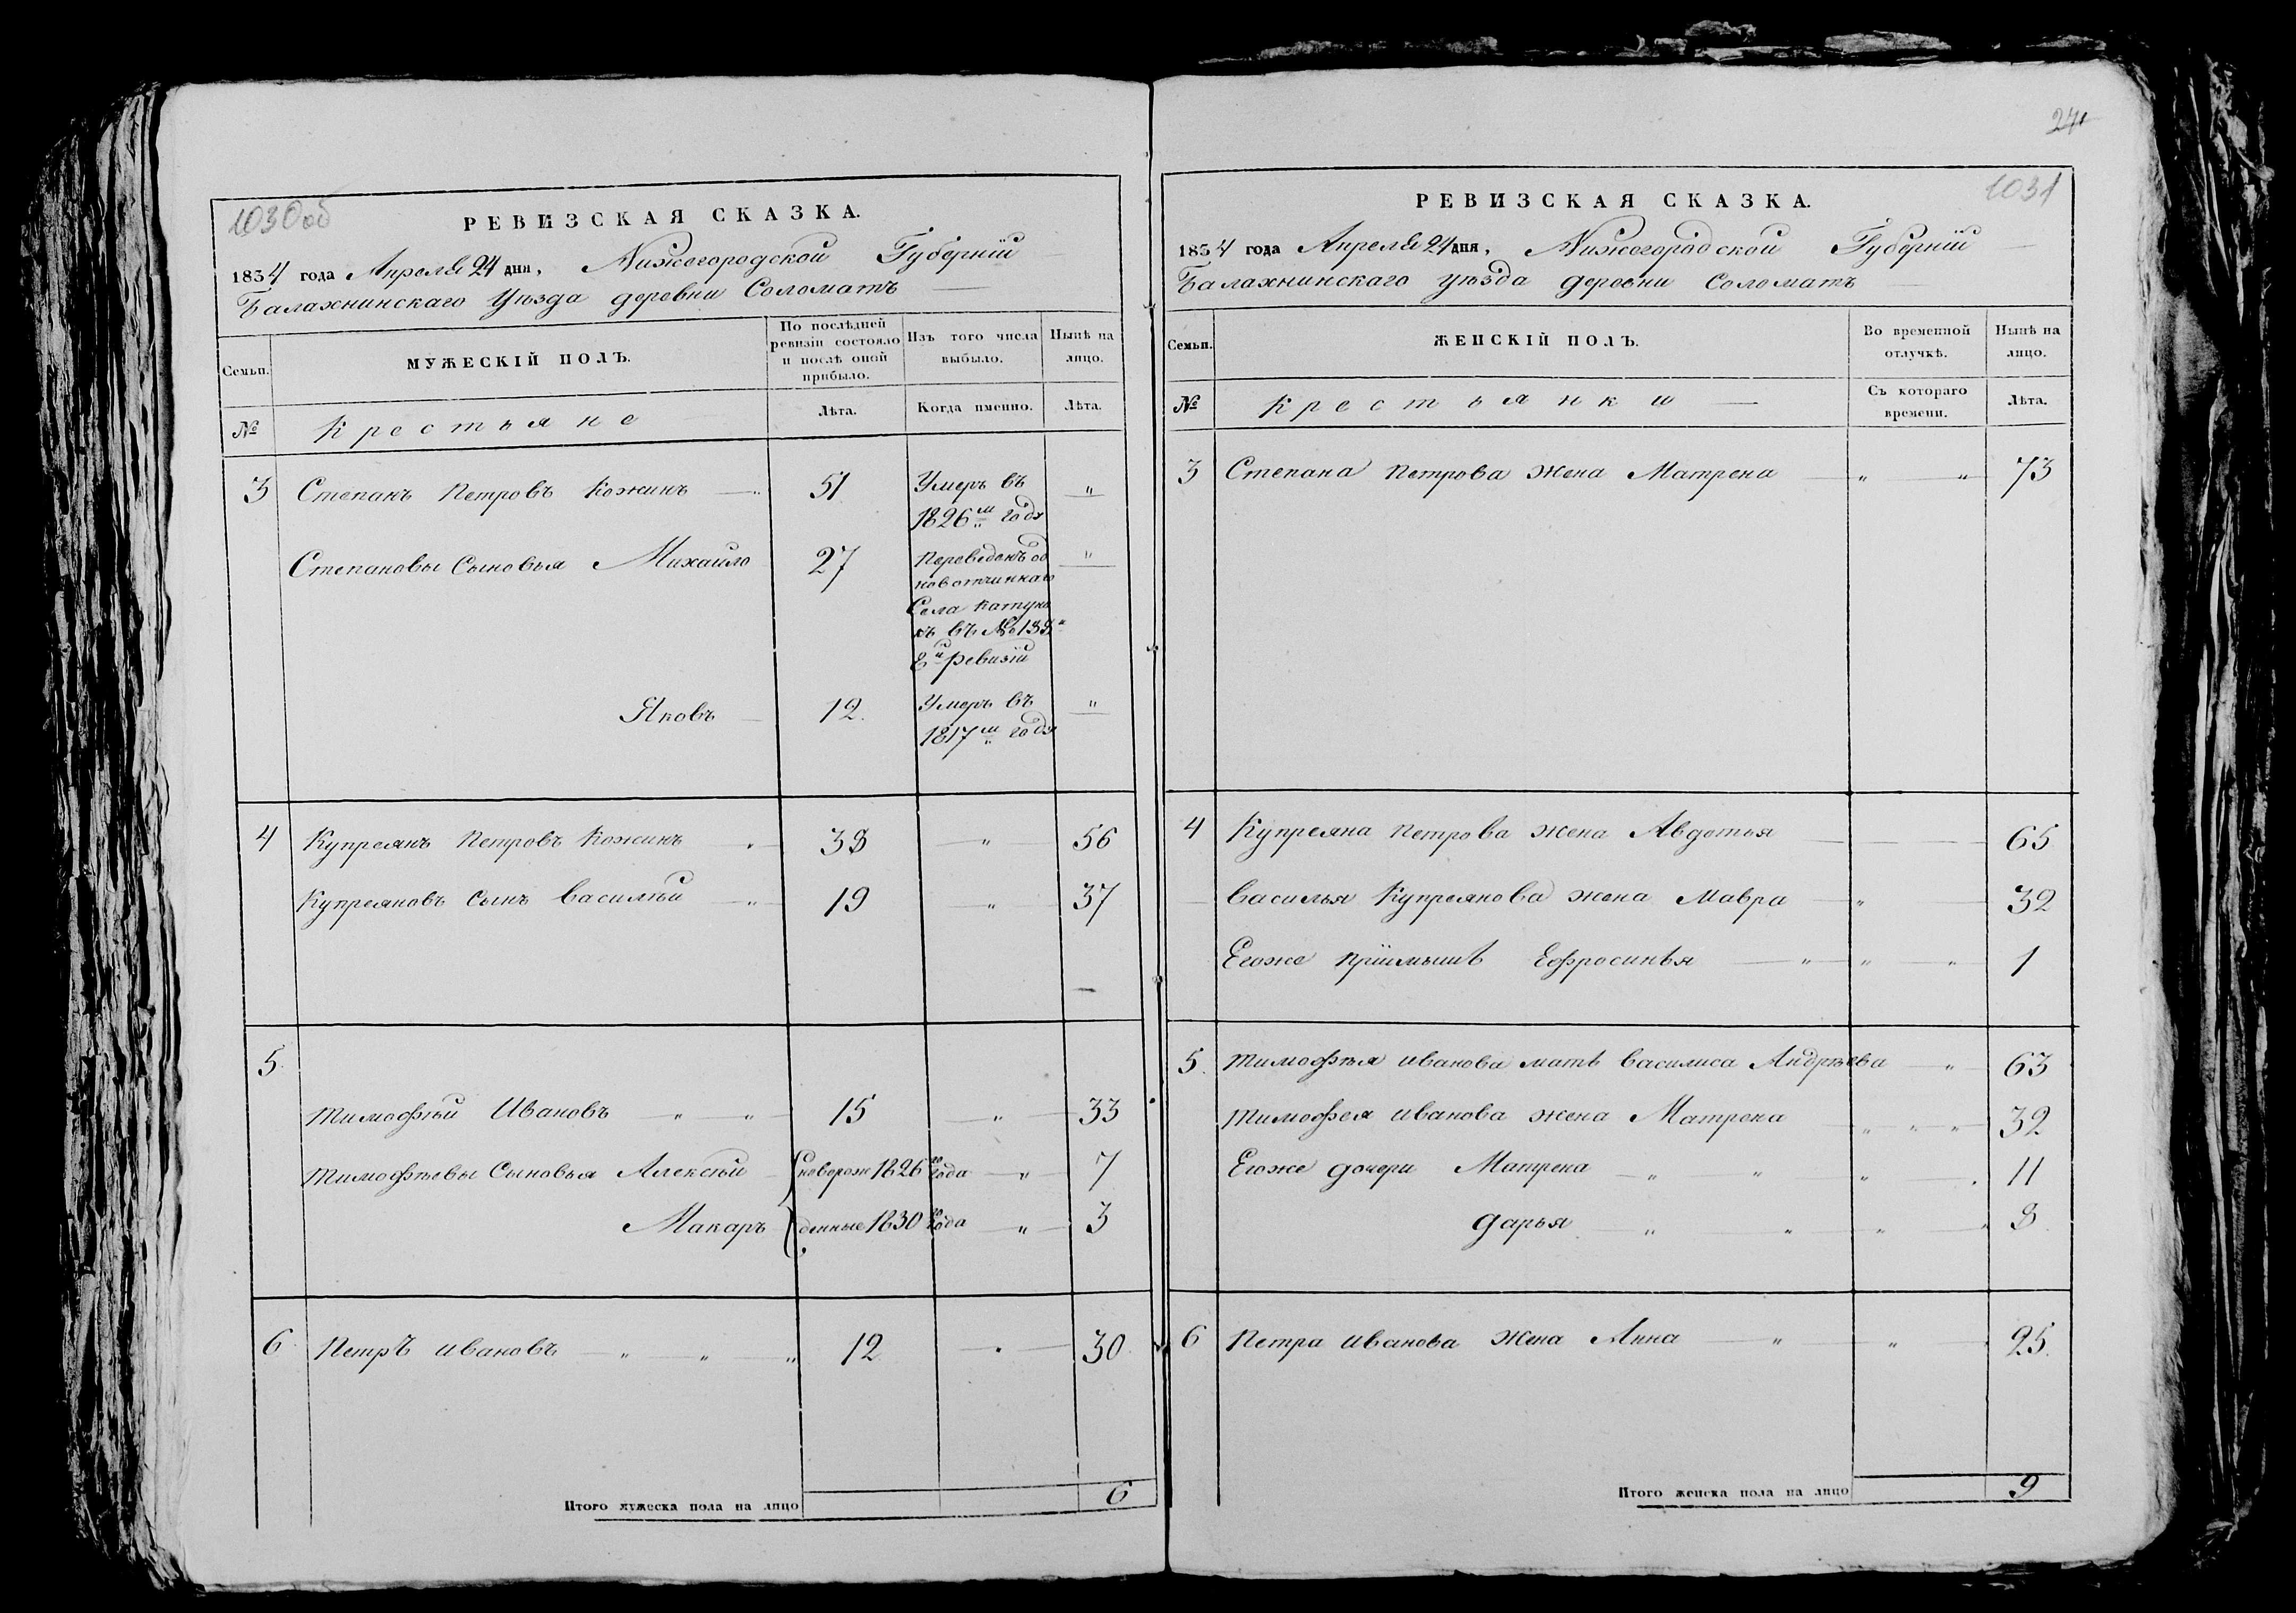 1030об
РЕВИЗСКАЯ СКАЗКА.
1834 года Апреля 24 дня, Нижегородской Губернїи
Балахнинскаго Уѣзда деревни Соломатъ
Семьи.
МУЖЕСКІЙ ПОЛЪ.
По послѣдней ревизіи состояло и послѣ оной прибыло.
Изъ того числа выбыло.
Нынѣ на лицо.
№
Крестьяне
Лѣта.
Когда именно.
Лѣта.
3 Степанъ Петровъ Кожинъ — 51 Умеръ въ „
1826м годѵ
Степановы Сыновья Михайло 27 Переведенъ од „
новотчиннаго
Села Катуно
къ въ №138й
8й ревизїи
Яковъ 12. Умеръ въ „
1817м годѵ
4 Купреянъ Петровъ Кожинъ 38 „ 56
Купреяновъ Сынъ Василѣй — 19 „ 37
5.
Тимофѣй Ивановъ „ „ 15 „ 33
Тимофѣевы Сыновья Алексѣй новорож 1826го года „ 7
Макаръ денные 1830го года „ 3
6 Петръ Ивановъ „ „ „ 12 30
Итого мужеска пола на лицо 6
24
1031
РЕВИЗСКАЯ СКАЗКА.
1834 года Апреля 24 дня, Нижегородской Губернїи
Балахнинскаго уѣзда деревни Соломатъ
Семьи.
ЖЕНСКІЙ ПОЛЪ.
Во временной отлучкѣ.
Нынѣ на лицо.
№
Крестьянки
Съ котораго времени.
Лѣта.
3 Степана Петрова жена Матрена „ „ 73
4 Купреяна Петрова жена Авдотья 65
Василья Купреянова жена Мавра „ 32
Егоже прїимышѣ Ефросинья „ „ „ 1
5. Тимофѣя Иванова мать Василиса Андрѣева „ 63
Тимофея Иванова жена Матрена „ „ „ 32
Егоже дочери Матрена „ „ „ 11
Дарья „ „ „ „ 8
6 Петра Иванова жена Анна „ „ 25.
Итого женска пола на лицо 9